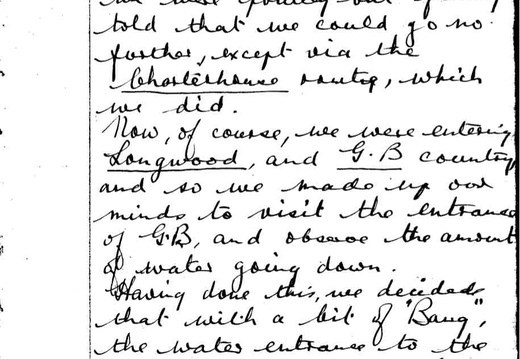 we were
told that we could go no
further, except via the
Charterhouse route, which
we did.
Now, of course, we were entering
Longwood, and G.B country
and so we made up our
minds to visit the entrance
of G.B, and observe the amount
of water going down.
Having done this, we decided
that with a bit of "Bang",
the water entrance to the